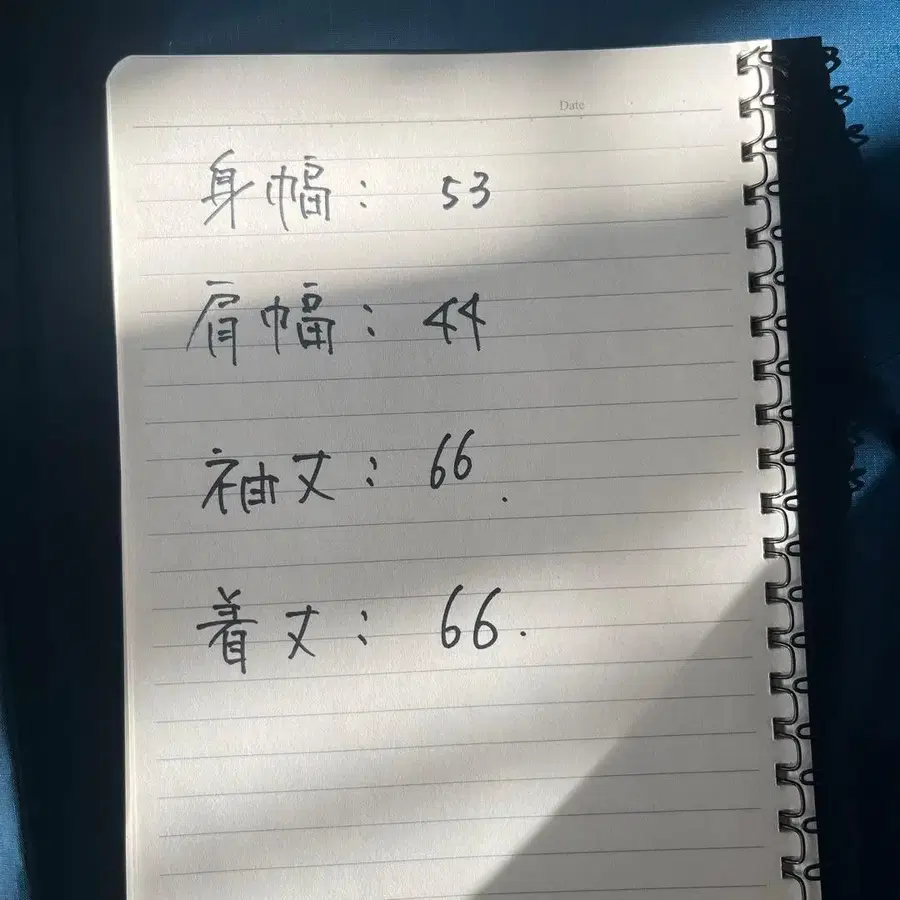 Date
身幅: 53
肩幅: 44
袖丈: 66.
着丈: 66.